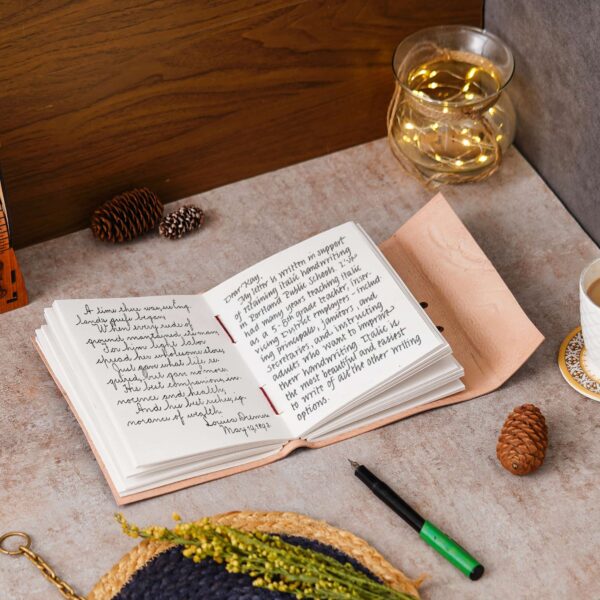 A time there was, ere
lands
When every rode of
ground maintained its man.
For him light labor
spread her wholesome store,
Just gave what life re-
quired, but gave no more.
His best companions, in-
nocence and health,
And his best riches, ig-
norance of wealth.
Louisa
May
Dear Kay,
My letter is written in support
of retaining italic handwriting
in Portland Public Schools. I've
had many years teaching italic
as a 5-8th grade teacher, inser-
vicing District employees - includ-
ing principals, janitors, and
secretaries, and instructing
adults who want to improve
their handwriting. Italic is
the most beautiful and easiest
to write of all the other writing
options.